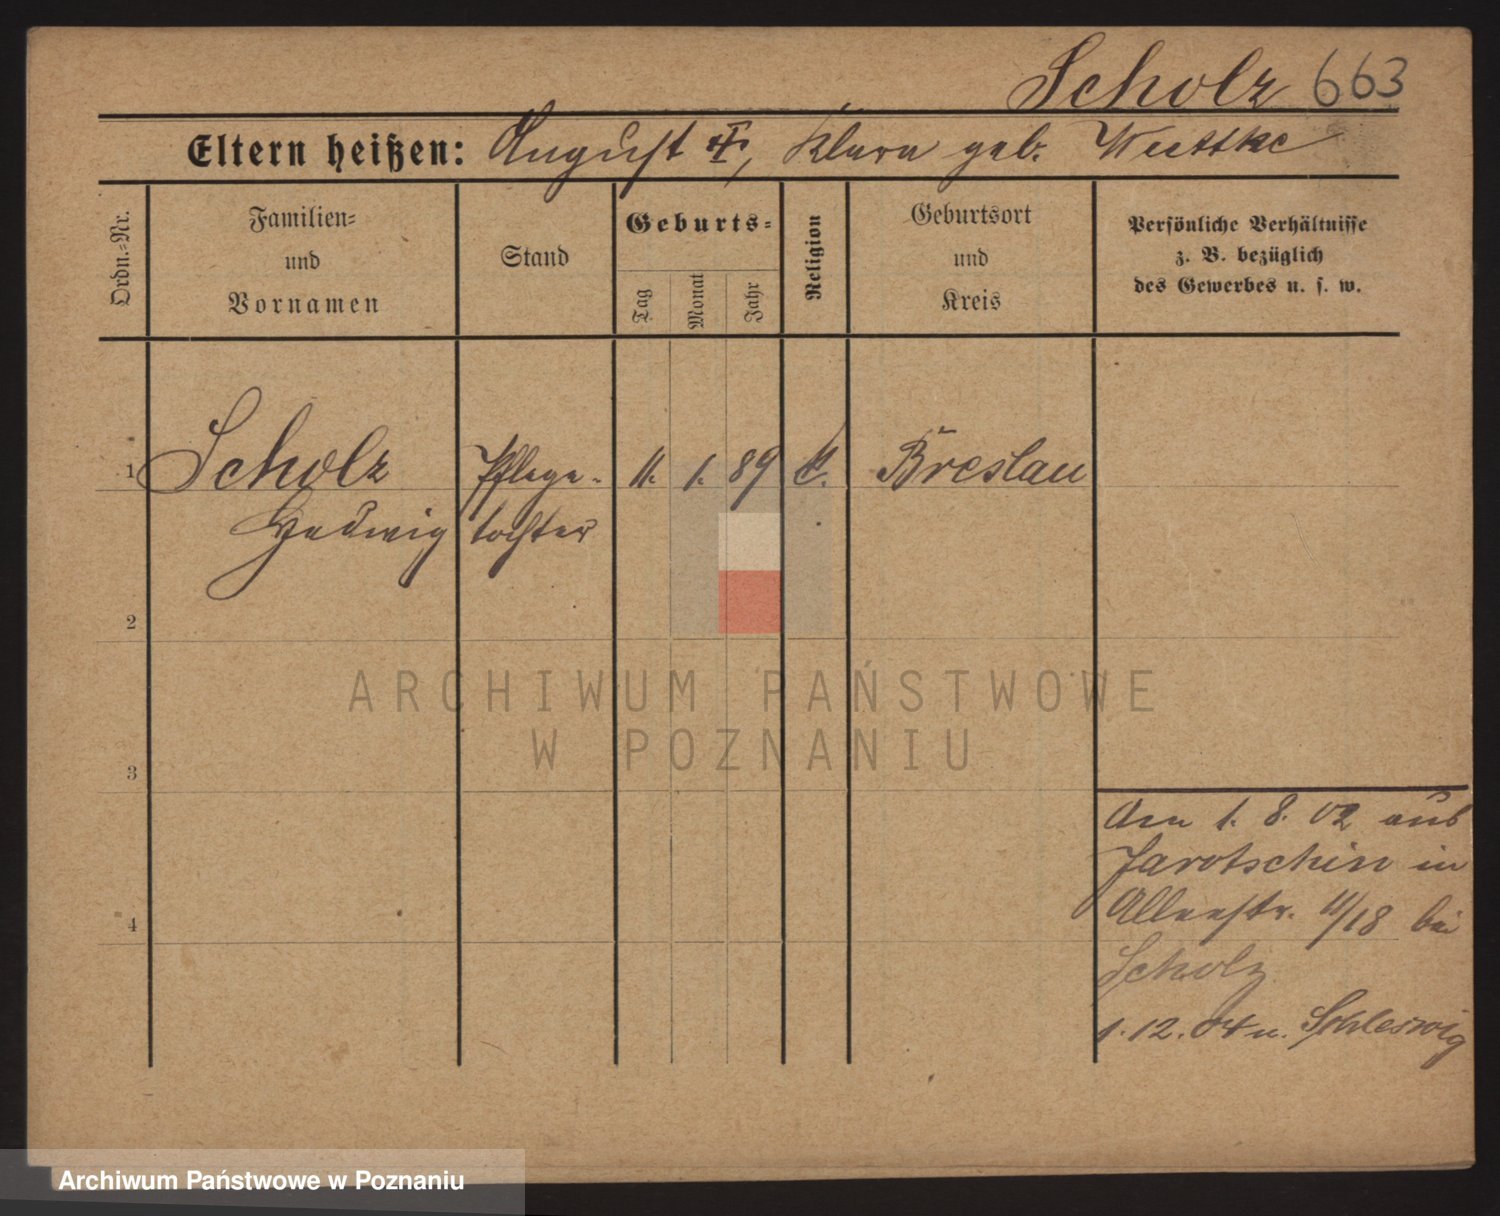 Scholz 663
Eltern heißen: August ✝, Klara geb. Wuttke
Ordn.=Nr.
Familien=
und
Vornamen
Stand
Geburts=
Tag
Monat
Jahr
Religion
Geburtsort
und
Kreis
Persönliche Verhältnisse
z. B. bezüglich
des Gewerbes u. s. w.
1 Scholz Pflege- 11. 1. 89 Breslau
Hedwig tochter
2
3
4
Am 1. 8. 02 aus
Jarotschin in
Alleestr. 11/18 bei
Scholz
1. 12. 04 n. Schleswig
ARCHIWUM PAŃSTWOWE
W POZNANIU
Archiwum Państwowe w Poznaniu